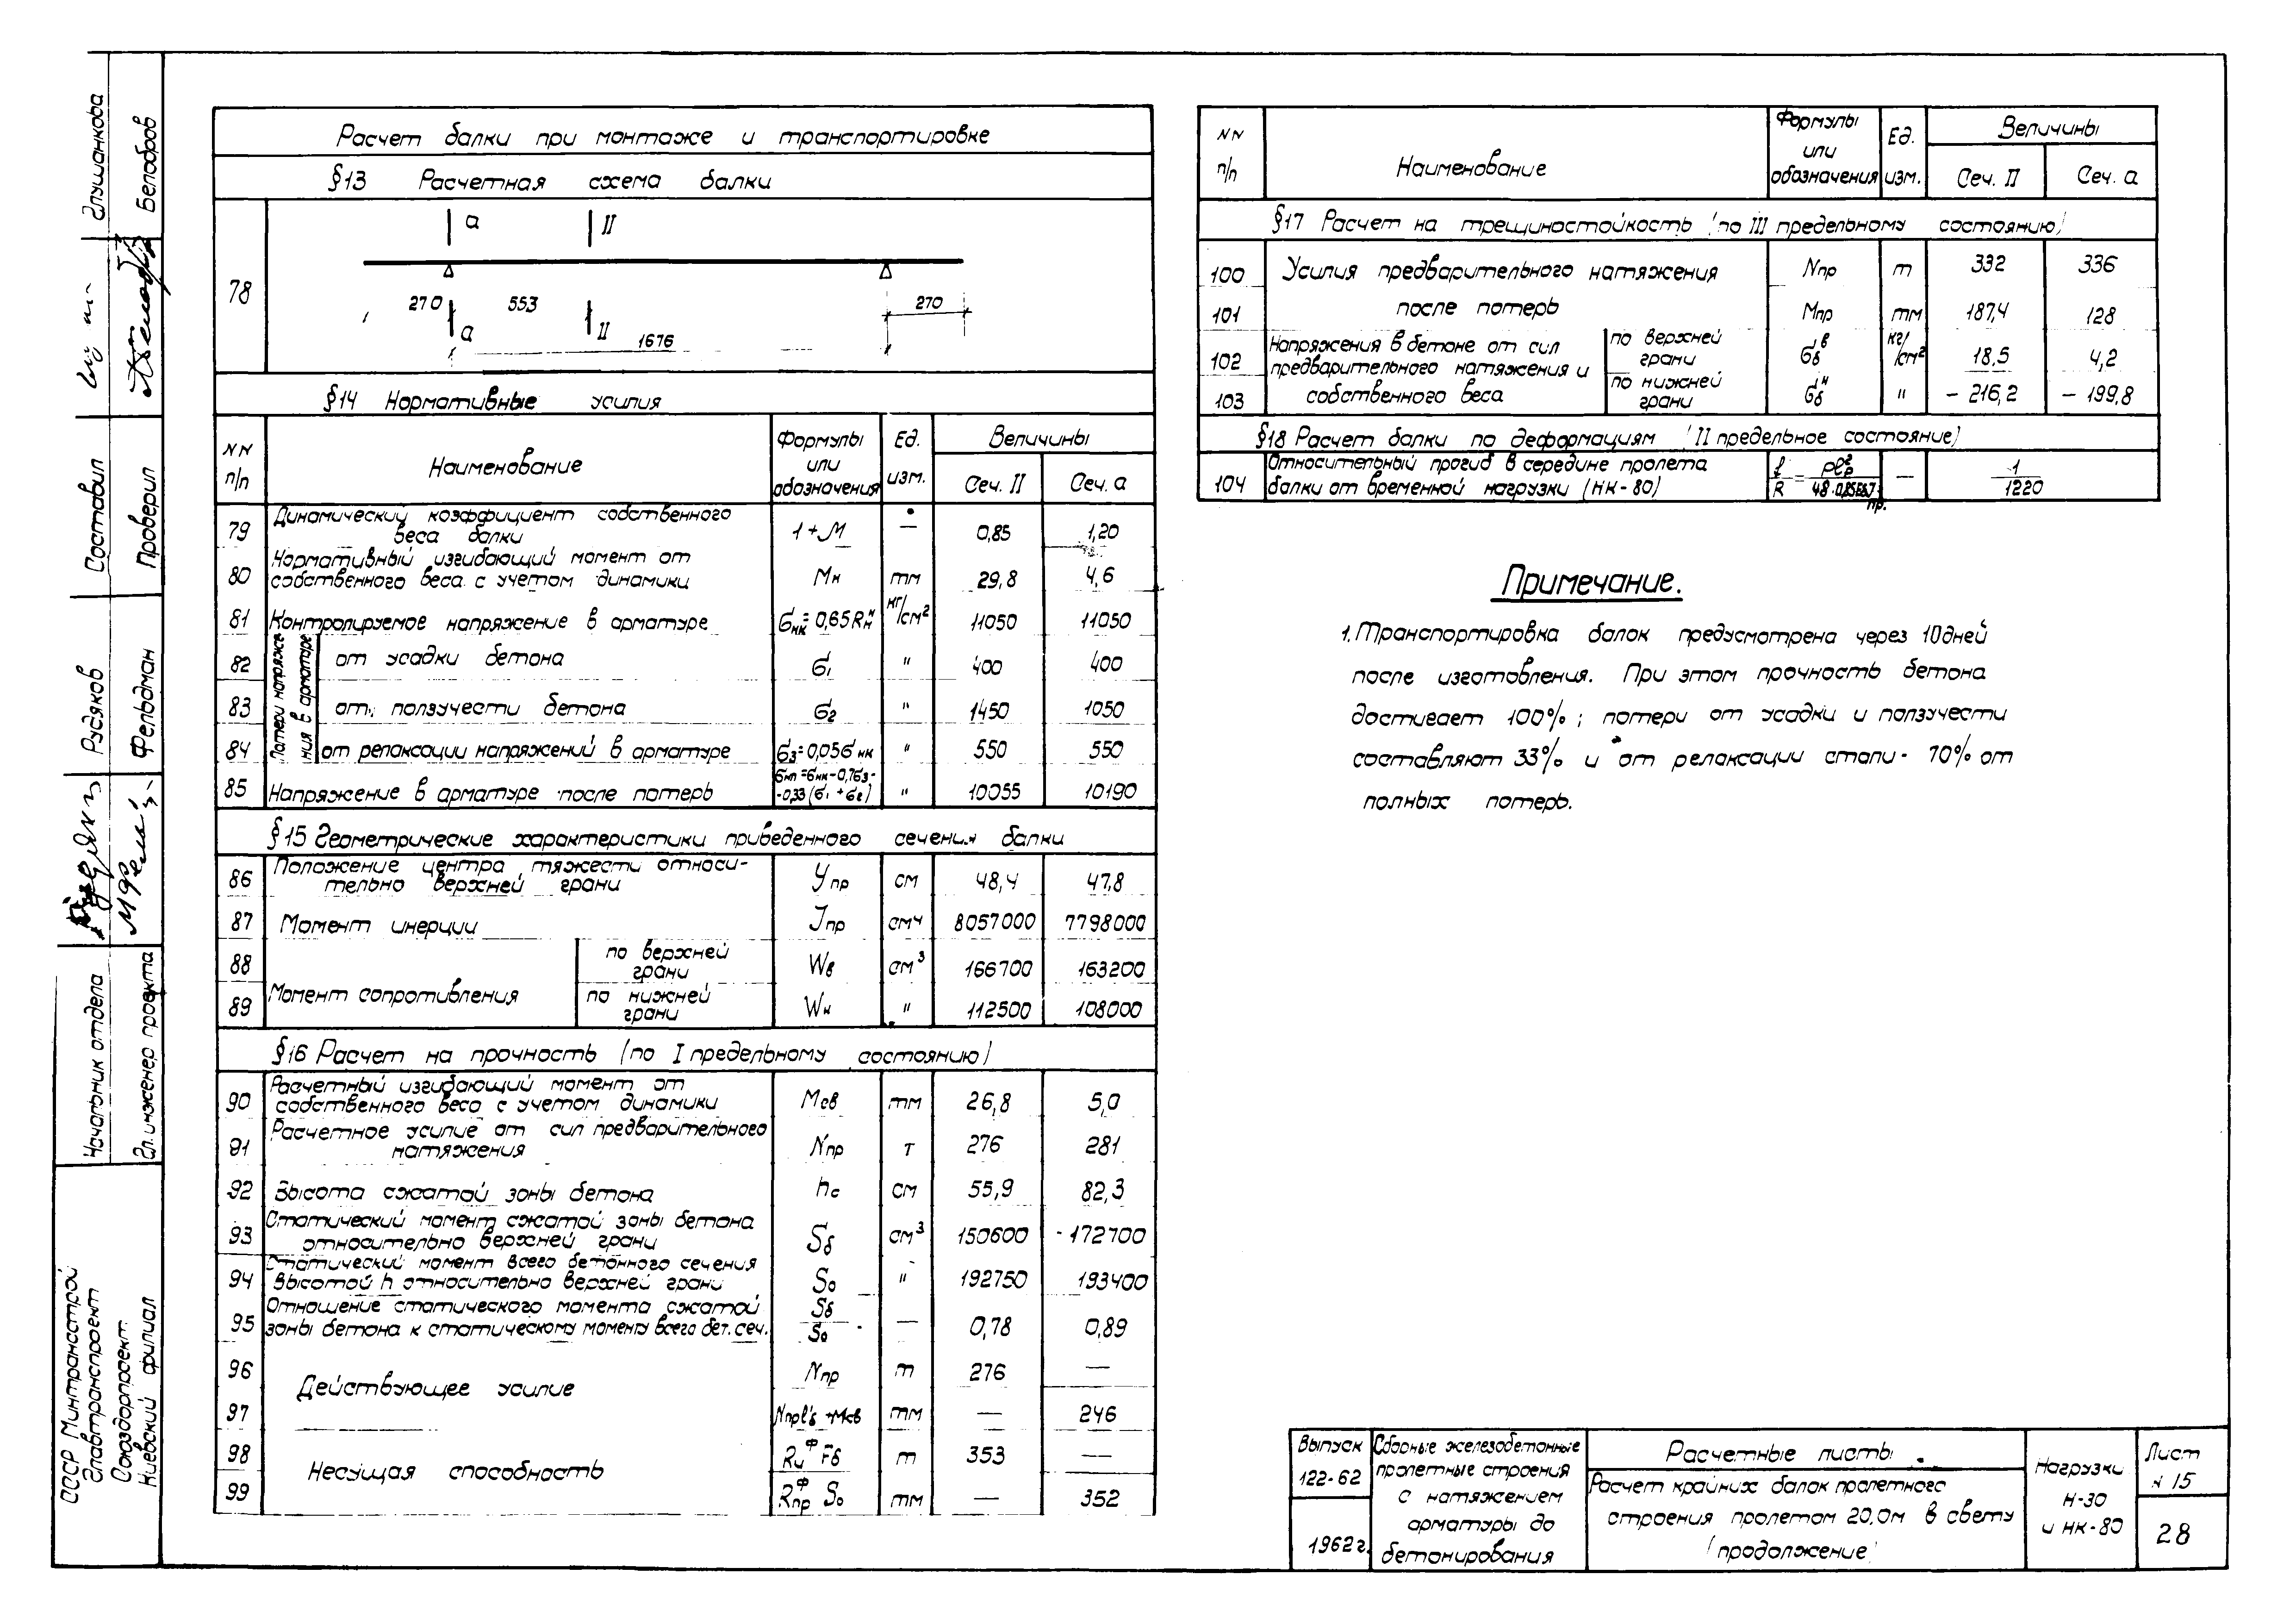 Расчет балки при монтаже и транспортировке
§13 Расчетная схема балки
78
а II
270 553 270
а II
1676
§14 Нормативные усилия
NN п/п Наименование Формулы или обозначения Ед. изм. Величины
Сеч. II Сеч. а
79 Динамический коэффициент собственного веса балки 1+М — 0,85 1,20
80 Нормативный изгибающий момент от собственного веса с учетом динамики Mн тм 29,8 4,6
81 Контролируемое напряжение в арматуре σнк=0,65Rнн кг/см² 11050 11050
Потери напряжения в арматуре
82 от усадки бетона σ1 " 400 400
83 от ползучести бетона σ2 " 1450 1050
84 от релаксации напряжений в арматуре σ3=0,05σнк " 550 550
85 Напряжение в арматуре после потерь σнп=σнк-0,7σ3--0,33(σ1+σ2) " 10055 10190
§15 Геометрические характеристики приведенного сечения балки
86 Положение центра тяжести относительно верхней грани Yпр см 48,4 47,8
87 Момент инерции Jпр см4 8057000 7798000
88 Момент сопротивления по верхней грани Wв см³ 166700 163200
89 по нижней грани Wн " 112500 108000
§16 Расчет на прочность (по I предельному состоянию)
90 Расчетный изгибающий момент от собственного веса с учетом динамики Mсв тм 26,8 5,0
91 Расчетное усилие от сил предварительного натяжения Nпр т 276 281
92 Высота сжатой зоны бетона hс см 55,9 82,3
93 Статический момент сжатой зоны бетона относительно верхней грани Sб см³ 150600 -172700
94 Статический момент всего бетонного сечения высотой h относительно верхней грани So " 192750 193400
95 Отношение статического момента сжатой зоны бетона к статическому моменту всего бет. сеч. Sб/So — 0,78 0,89
96 Действующее усилие Nпр т 276 —
97 тм — 246
98 Несущая способность RиФ Fб т 353 —
99 RпрФ So тм — 352
NN п/п Наименование Формулы или обозначения Ед. изм. Величины
Сеч. II Сеч. а
§17 Расчет на трещиностойкость (по III предельному состоянию)
100 Усилия предварительного натяжения Nпр т 332 336
101 после потерь Mпр тм 187,4 128
102 Напряжения в бетоне от сил предварительного натяжения и собственного веса по верхней грани σбв кг/см² 18,5 4,2
103 по нижней грани σбн " - 216,2 - 199,8
§18 Расчет балки по деформациям (II предельное состояние)
104 Относительный прогиб в середине пролета балки от временной нагрузки (НК-80) — 1/1220
Примечание.
1. Транспортировка балок предусмотрена через 10 дней
после изготовления. При этом прочность бетона
достигает 100%; потери от усадки и ползучести
составляют 33% и от релаксации стали - 70% от
полных потерь.
Выпуск 122-62
1962 г.
Сборные железобетонные
пролетные строения
с натяжением
арматуры до
бетонирования
Расчетные листы
Расчет крайних балок пролетного
строения пролетом 20,0м в свету
(продолжение)
Нагрузки
Н-30
и НК-80
Лист
N 15
28
СССР Минтрансстрой
Главтранспроект
Союздорпроект
Киевский филиал
Начальник отдела Рудяков
Гл. инженер проекта Фельдман
Составил Глушанкова
Проверил Белобров